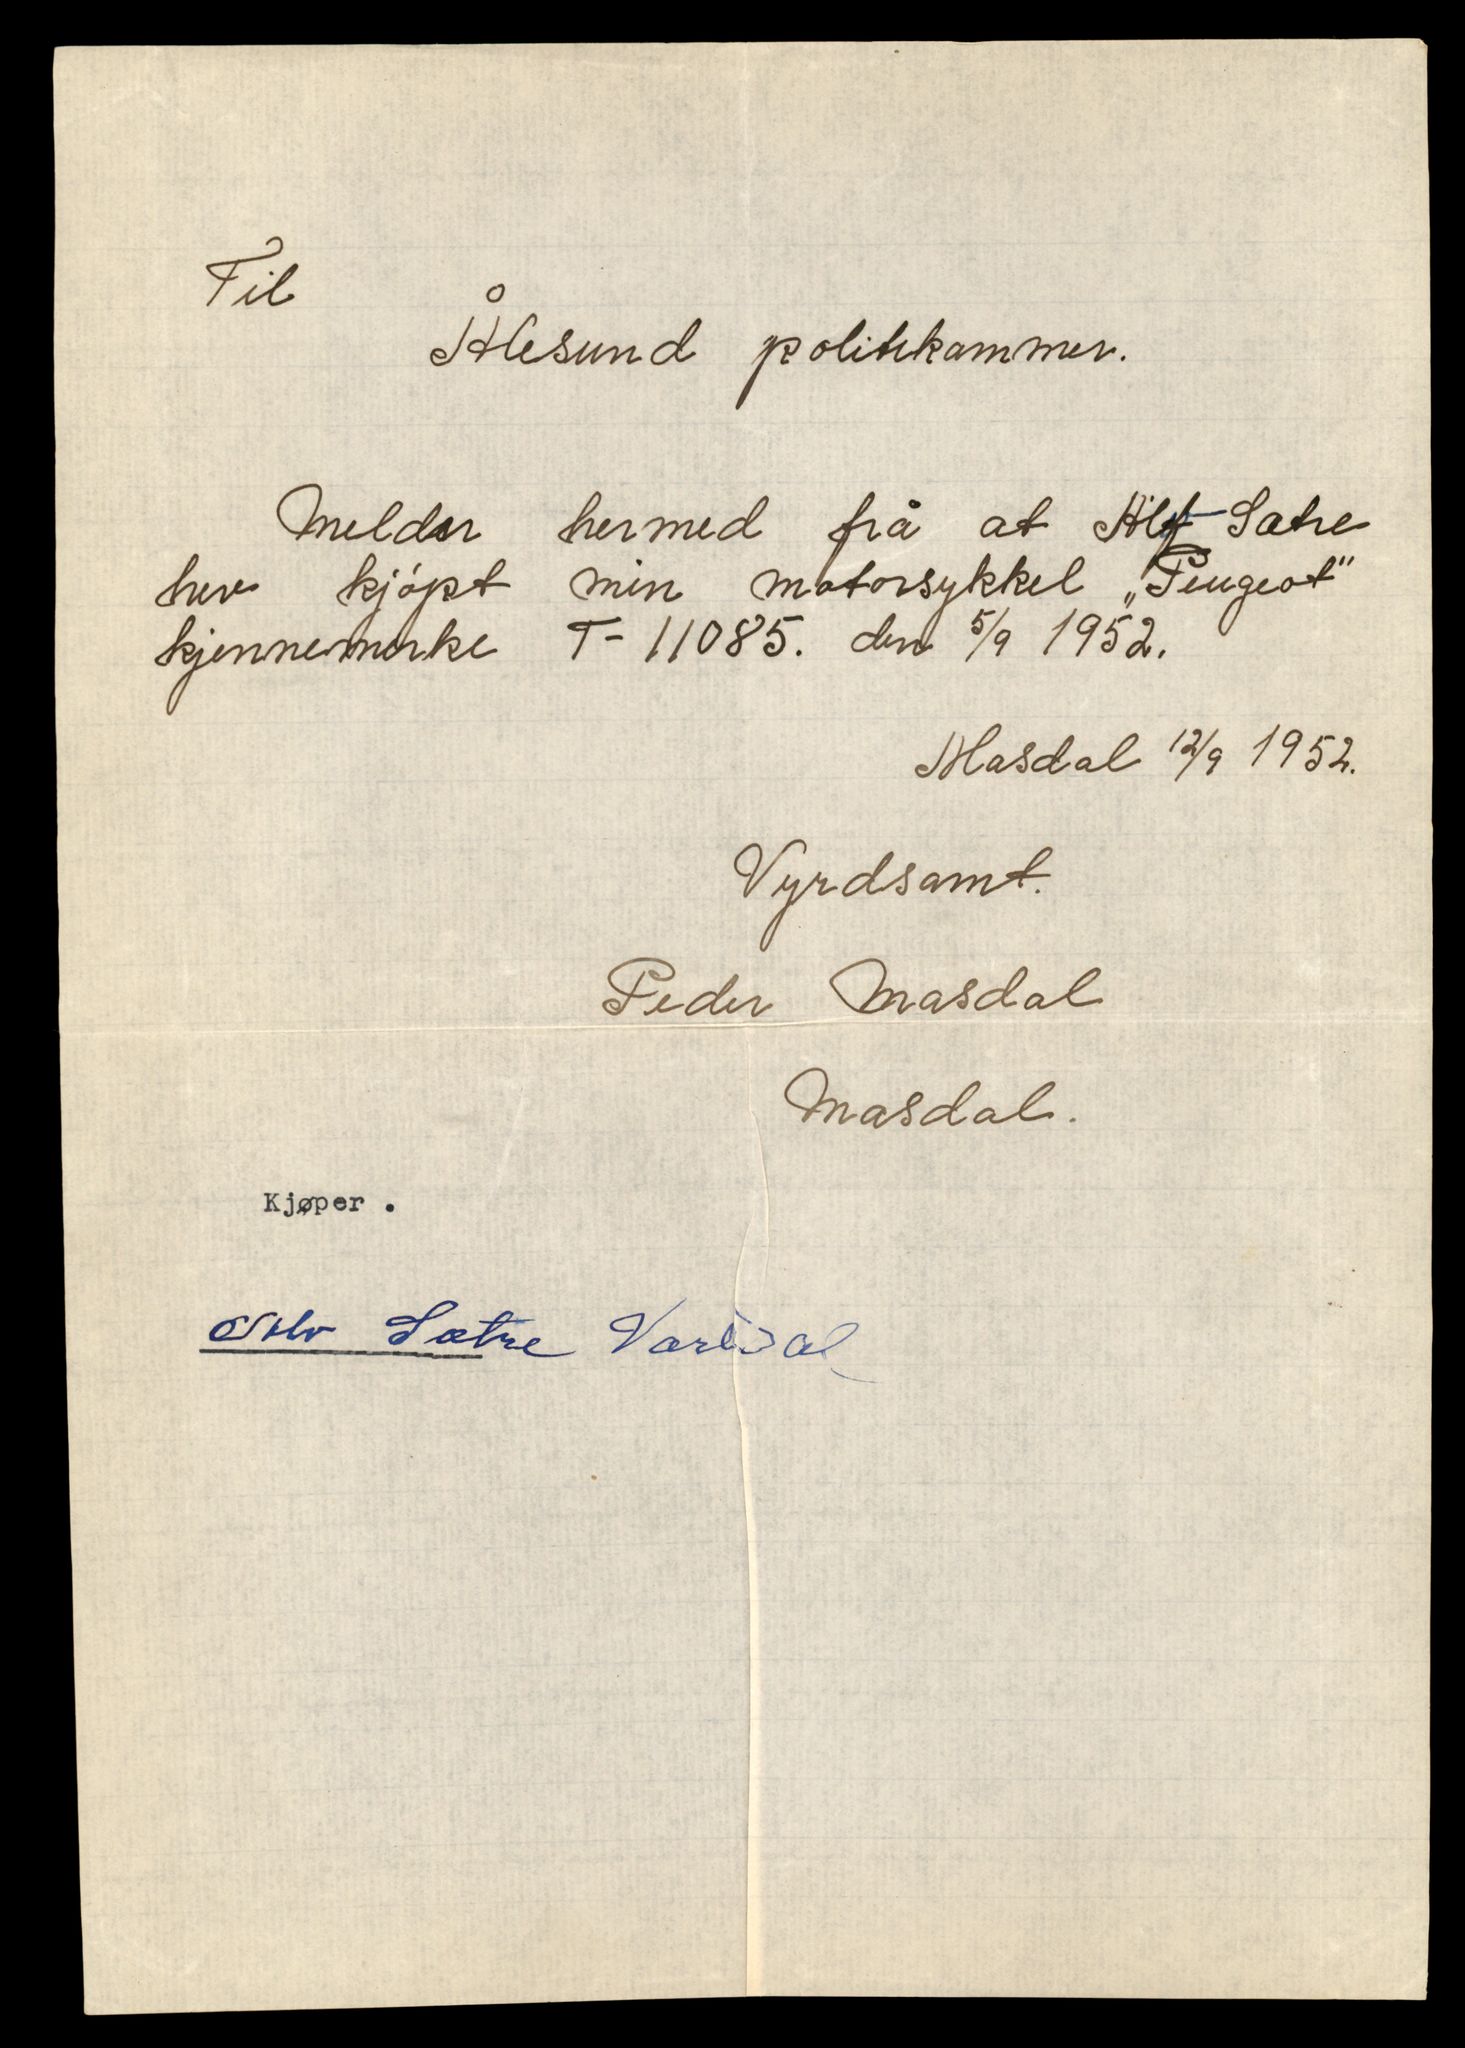 Til
Ålesund politikammer.
Melder hermed frå at Alf Sætre
hev kjöpt min motorsykkel „Peugeot"
kjennemerke T-11085. den 5/9 1952.
Masdal 12/9 1952.
Vyrdsamt.
Peder Masdal
Masdal.
Kjøper .
Sætre Vartdal